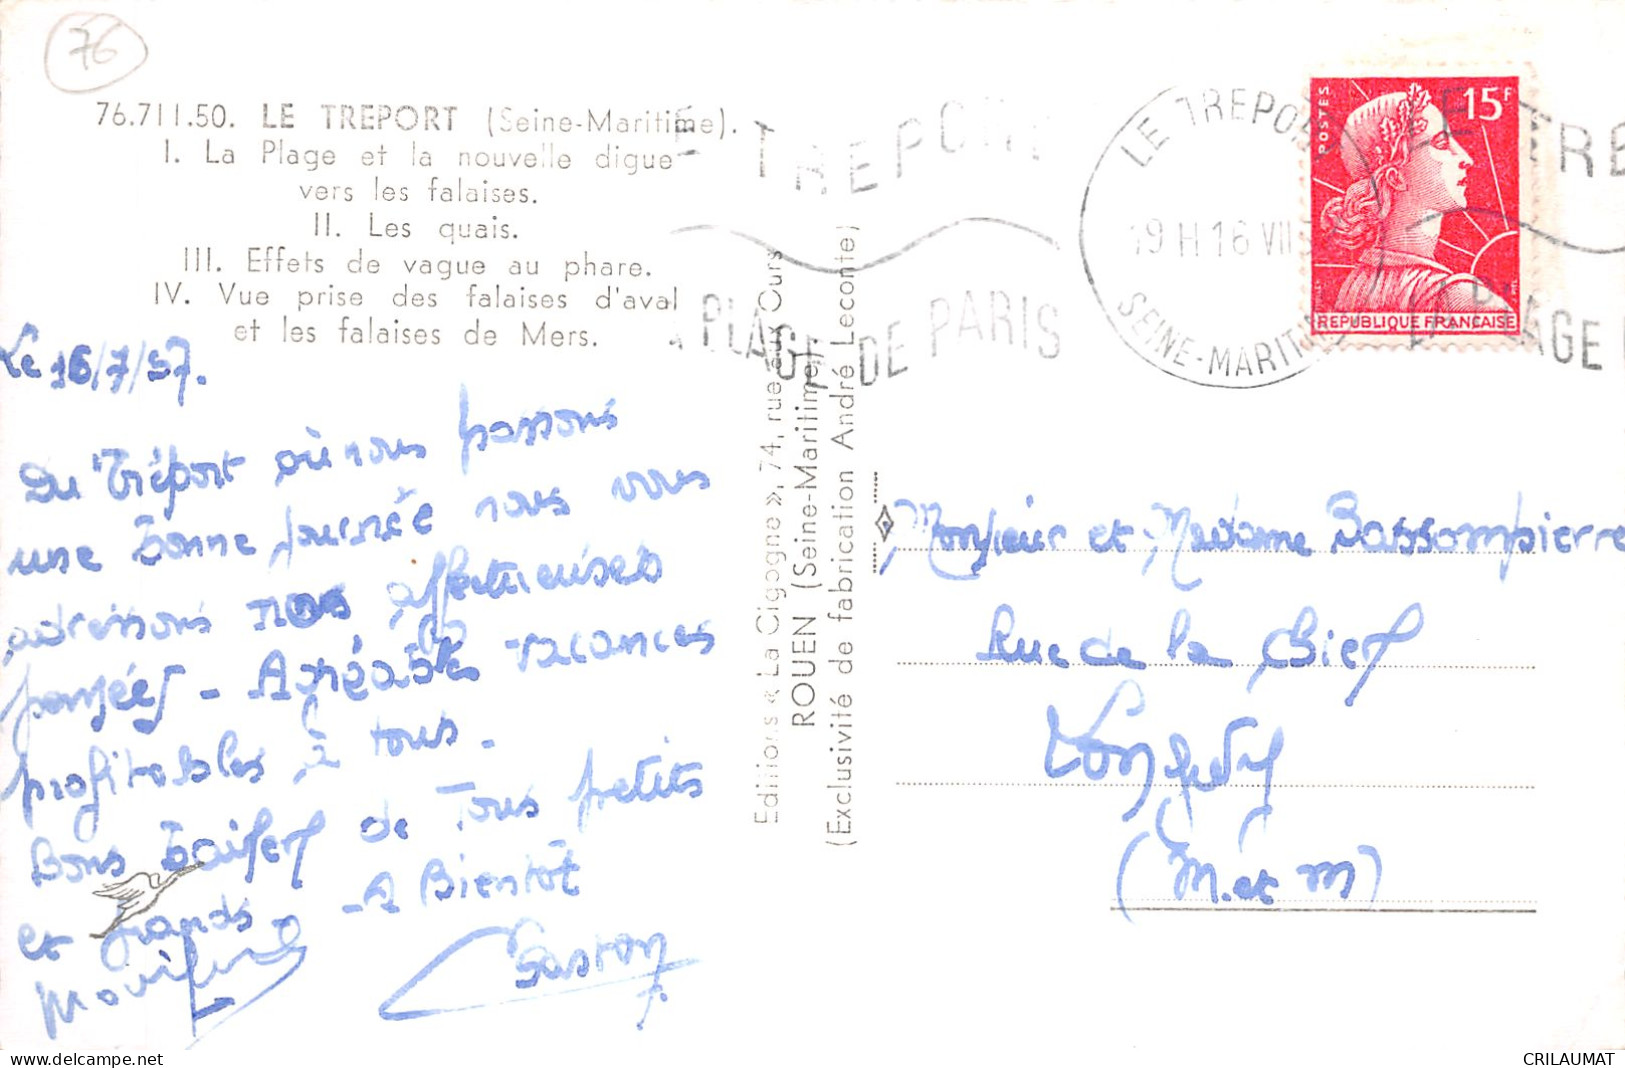 76
76.711.50. LE TREPORT (Seine-Maritime).
I. La Plage et la nouvelle digue
vers les falaises.
II. Les quais.
III. Effets de vague au phare.
IV. Vue prise des falaises d'aval
et les falaises de Mers.
Le 16/7/57.
Du Tréport où nous passons
une bonne journée nous vous
adressons nos affectueuses
pensées - Agréables vacances
profitables à tous.
Bons baisers de Tous petits
et grands - A Bientôt
Gaston
Editions « La Cigogne », 74, rue aux Ours
ROUEN (Seine-Maritime).
(Exclusivité de fabrication André Leconte)
LE TREPORT
PLAGE DE PARIS
LE TREPORT
19 H 16 VII
SEINE-MARITIME
POSTES
15F
REPUBLIQUE FRANÇAISE
LE TRE
PLAGE
Monsieur et Madame Bassompierre
Rue de la
Longwy
(M. et M)
www.delcampe.net
CRILAUMAT